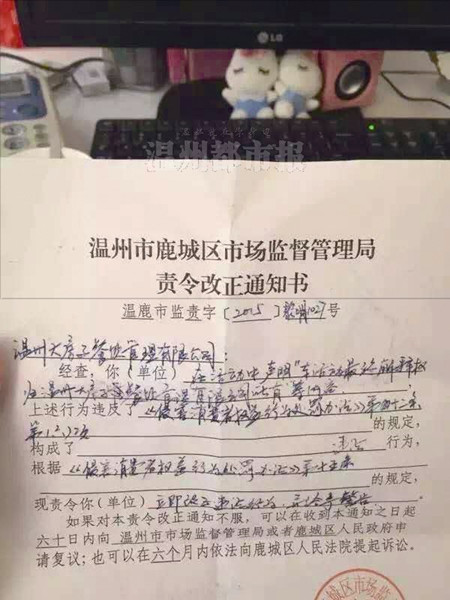 LG
温州都市报
温州市鹿城区市场监督管理局
责令改正通知书
温鹿市监责字〔2015〕黎明027号
温州大唐正餐饮管理有限公司：
经查，你（单位）在活动中声明“本次活动最终解释权
归温州大唐正餐饮管理有限公司所有”等内容
上述行为违反了《侵害消费者权益行为处罚办法》第十二条
的规定，
构成了 违法 行为，
根据《侵害消费者权益行为处罚办法》第十五条
的规定，
现责令你（单位）立即改正违法行为，并给予警告
如果对本责令改正通知不服，可以在收到本通知之日起
六十日内向 温州市市场监督管理局或者鹿城区人民政府申
请复议；也可以在六个月内依法向鹿城区人民法院提起诉讼。
区市场监